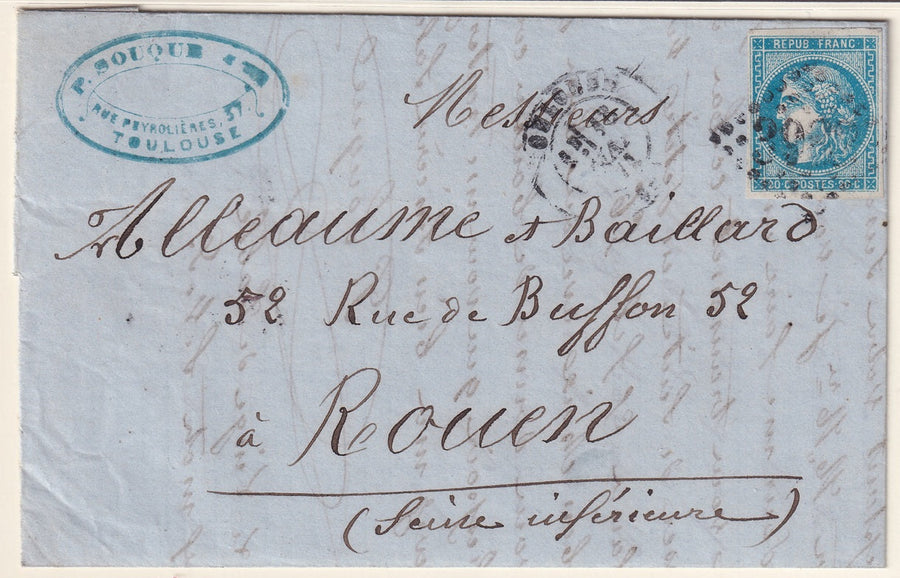 P. SOUQUE
RUE PEYROLIÈRES, 37
TOULOUSE
REPUB. FRANC.
20 C. POSTES 20 C.
Messieurs
Alleaume & Baillard
52 Rue de Buffon 52
à Rouen
(Seine inférieure)